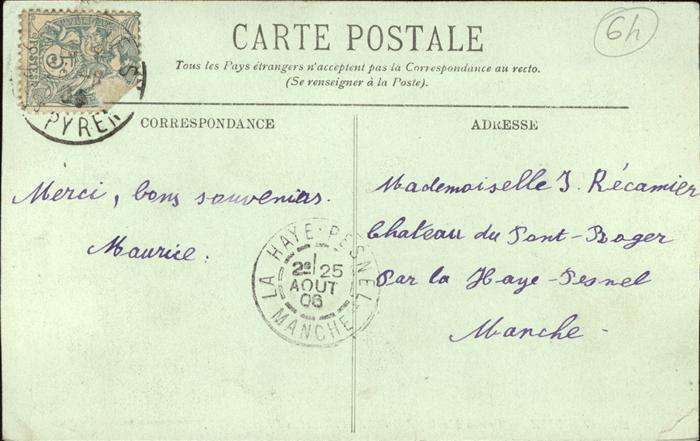 6h
CARTE POSTALE
Tous les Pays étrangers n'acceptent pas la Correspondance au recto.
(Se renseigner à la Poste).
PYREN
CORRESPONDANCE
ADRESSE
Merci, bons souvenirs.
Maurice.
Mademoiselle J. Récamier
Château du Pont-Roger
Par la Haye-Pesnel
Manche
LA HAYE-PESNEL
2E 25
AOUT
06
MANCHE